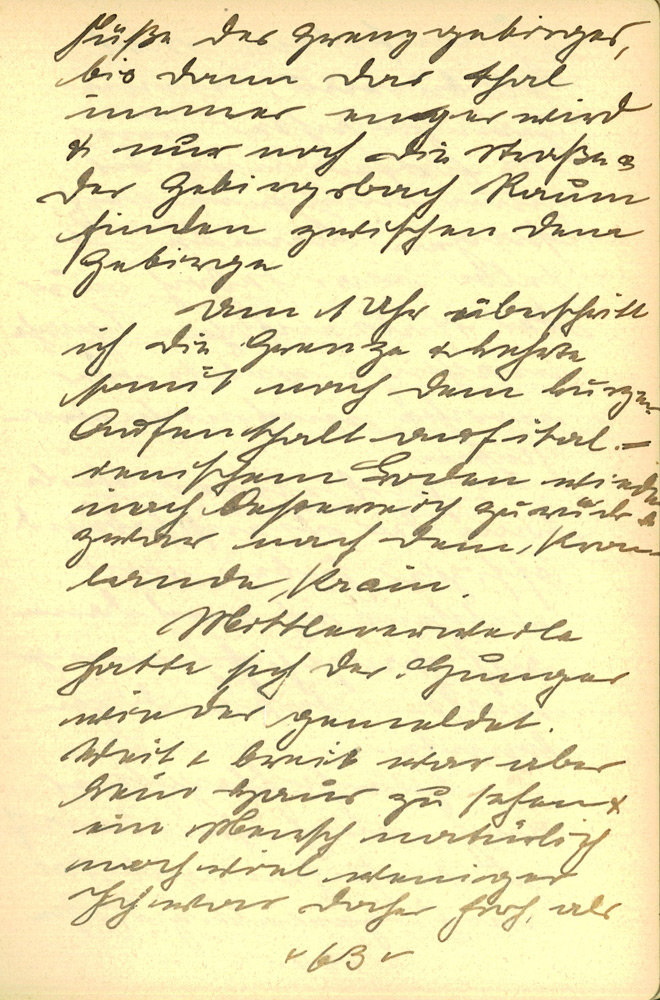 Füße des Grenzgebirges,
bis dann das Thal
immer enger wird
& nur noch die Straße &
der Gebirgsbach Raum
finden zwischen dem
Gebirge
Um 1 Uhr überschritt
ich die Grenze & kehrte
somit nach dem kurzen
Aufenthalt auf ital.-
ienischem Boden wieder
nach Oesterreich zurück &
zwar nach dem Kron-
lande Krain.
Mittlererweile
hatte sich der Hunger
wieder gemeldet.
Weit & breit war aber
kein Haus zu sehen &
ein Mensch natürlich
noch viel weniger
Ich war daher froh, als
63